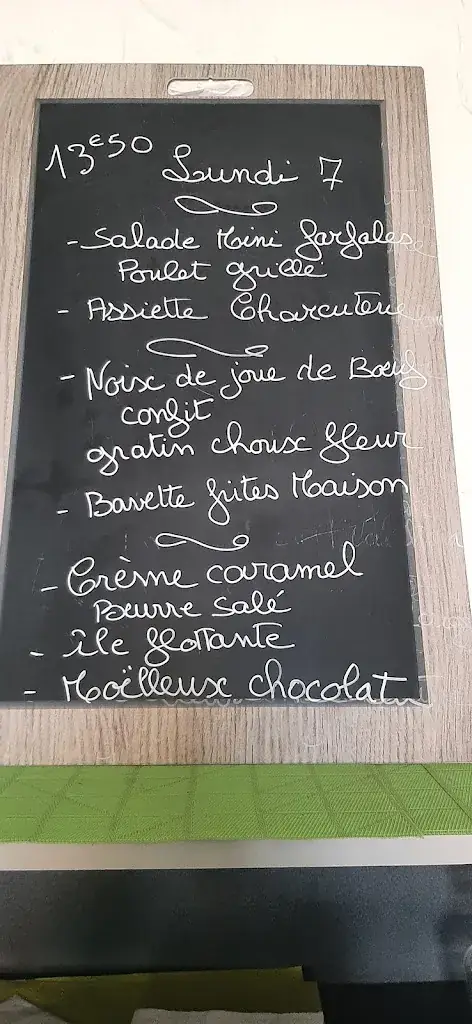 13€50 Lundi 7
- Salade Mini farfales
Poulet grillé
- Assiette Charcuterie
- Noix de joue de Boeuf
confit
gratin choux fleur
- Bavette frites Maison
- Crème caramel
Beurre salé
- île flottante
- Moëlleux chocolat